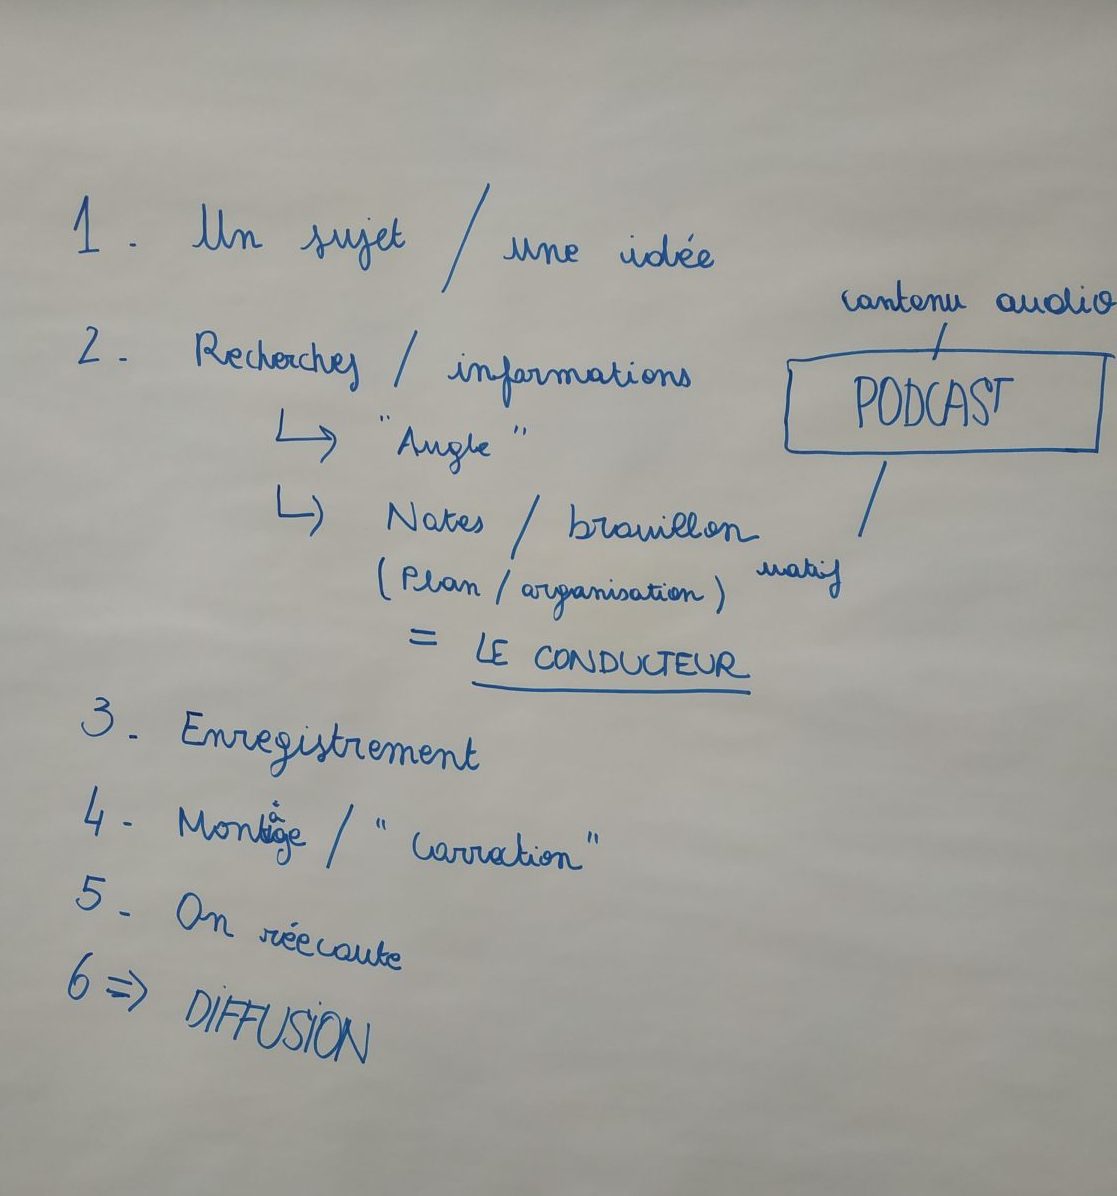 1. Un sujet / une idée
contenu audio
2. Recherches / informations
PODCAST
↳ "Angle"
↳ Notes / brouillon
natif
(Plan / organisation)
= LE CONDUCTEUR
3. Enregistrement
4. Montage / "Correction"
5. On réecoute
6 ⇒ DIFFUSION